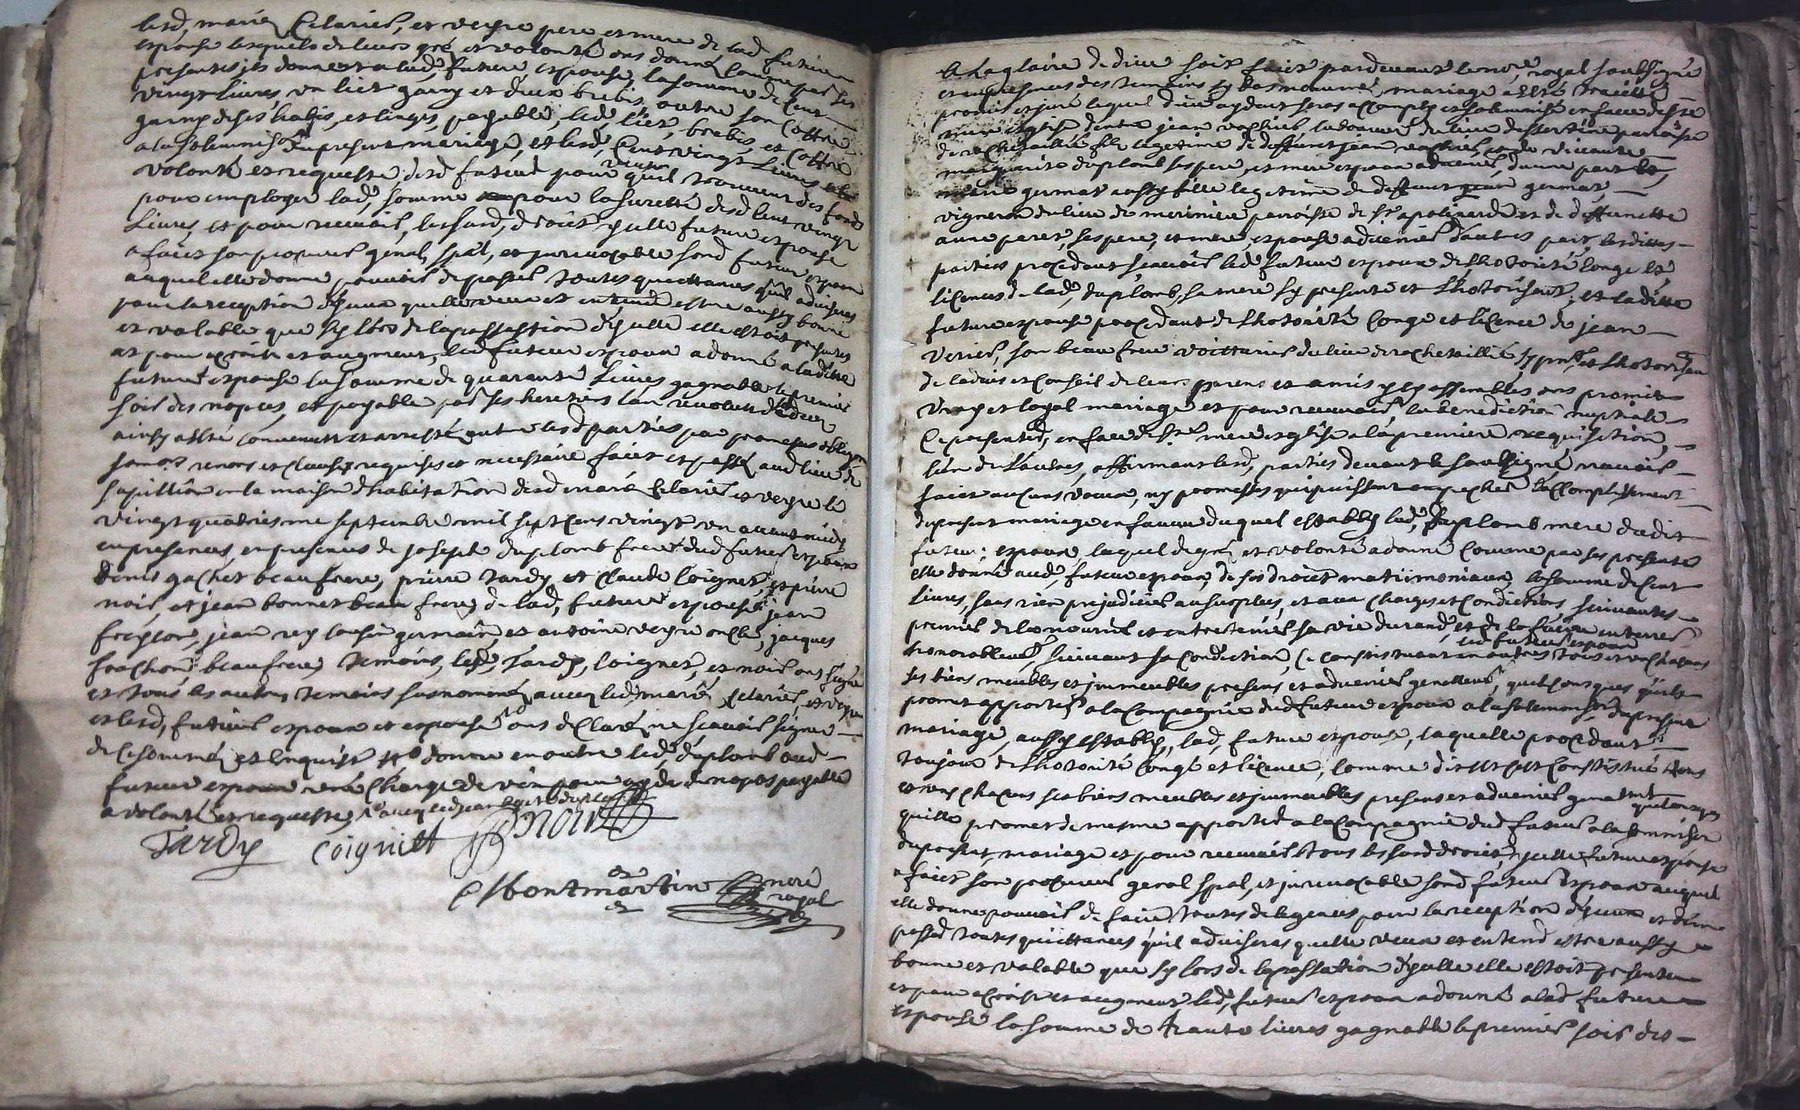 lesd, mariés Celarier, et veyre pere et mere de lad, future
espouse lesquels de leurs gré et volonté ont donné comme par ses
presentes ils donnent a lad, future espouse, la somme de cent
vingt livres, un liet garny et deux brebis, outre son coffre
garny de ses habis, et linges, payable, led, liet, brebis, et coffre
a la solemnisaon du present mariage, et lesd, cent vingt livres a la
volonté et requeste dud futeur pour veu quil trouveur des fonds
pour employer lad, somme pour la sureté desd cent vingt
livres et pour recevoir, lesdard, droict ycelle future espouse
a faict son procureur genal, spal, et jrrevocable sond futeur espoux
auquel elle donne pouvoir de passer toutes quittances quil advisera
pour la reception dyceux quelle veut et entend estre aussy bonne
et valable que sy lors de la passassion dycelle elle estoit presentes
et pour acroist et augment, led futeur espoux a donné a ladite
future espouse la somme de quarante livres gagnable le premier
soir des nopces, et payable par ses heritiers lan revolu du deces
ainsy a esté convenu et arresté entre lesd parties par promesses obligaon
soumis, renons et clauses requises et necessaire faict et passé aud lieu de
sapillion en la maison dhabitation desd mariés Celarier et veyre le
vingt quatriesme septembre mil sept cens vingt un avant midy
en presences, en presences de joseph duplomb frere dud futeur espoux
denis gachet beaufrere, pierre tardy et claude coignet, et pierre
noir, et jean bonnet beau frere de lad, future espouse, jean
freysson, jean rey cousin germain et antoine veyre oncle, jacques
frachon beaufrere temoins, lesd, Tardy, coignet, et noir ont signé
et tous les autres temoins susnommés avec lesd, mariés Celarier, et veyre
et lesd, futeurs espoux et espouse ont declaré ne scavoir signer
de ce sommés et enquist donne en outre led, duplomb aud
futeur espoux une charge de vin pour ayde de nopces payable
a volonté et requeste
Tardy coignett Noir
Montmartin nore
royal
A la gloire de dieu soit faict pardevant le nore, royal soubsigné
et en presences des temoins sy bas nommés, mariage a esté traicté
promis et juré lequel dieu aydant sera accomply et solemnisé en face de ste
mere eglise, dentre jean vachier, laboureur du lieu de partine paroisse
de rochetaillée fils legitime de deffunct jean vachier, et de vivante
marguerite duplomb ses pere, et mere espoux advenir, dune part et
marie germat aussy fille legitime de deffunct jean germat,
vigneron du lieu de merimieu paroisse de st apolinard et de deffuncte
anne peret, ses pere, et mere espouse advenir dautres part, lesdittes
parties procedant scavoir led, futeur espoux de lhotorité congé et
licences de lad, duplomb, sa mere sy presente et lhotorisant, et ladite
future espouse procedant de lhotorité congé et licence de jean
verier, son beau frere voitturier du lieu de rochetaillée sy pnt, et lhotorisant
de ladvis et conseil de leurs parens et amis yly assemblés ont promis
vray et loyal mariage et pour recevoir la benediction nuptiale
se presenter, en face de ste mere eglise a la premiere requisition
lun de lautres, affirmant lesd, parties devant le soubsigné navoir
faict aucuns voeux, ny promesses qui puissent empecher laccomplissement
du present mariage en faveur duquel estably lad, duplomb mere dudit
futeur espoux, laquel de gré et volonté a donné comme par ses presentes
elle donne aud, futeur espoux, de ses droict matrimoniaux la somme de cent
livres, sans rien prejudicier au surplus, et aux charges et condictions suivantes
premier de la nourrir et entretenir sa vie durand, et de la faire enterrer
honorablement, suivant sa condiction, se constituant led futeur espoux en outres tous et un chacuns
ses biens meubles et jmmeubles presens et advenir generalement, quelconques quil
promet apporter a la compagnie dud futeur espoux a la solemnisaon du present
mariage, aussy estably, lad, future espouse, laquelle procedant
toujour de lhotorité congé et licence, comme dit est cest constitué tous
et uns chacuns ses biens meubles et jmmeubles presens et advenir genalmt quelconques
quelle promet de mesme apporter a la compagnie dud futeur a la solemnison
du present mariage et pour recevoir tous lesdard droict ycelle future espouse
a faict son procureur genal spal, et jrrevocable sond futeur espoux auquel
elle donne pouvoir de faire toutes deligences pour la reception dyceux et den
passer toutes quittances quil advisera quelle veux et entend estre aussy
bonne et valable que sy lors de la passation dycelle elle estoit presente
et pour acroist et augment led, futeur espoux a donné a lad future
espouse la somme de trante livres gagnable le premier soir des